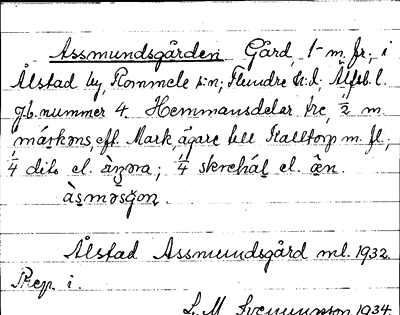 Assmundsgården Gård, 1 m. fr., i
Ålstad by, Rommele s:n; Flundre h:d; Älfsb. l.
jb. nummer 4. Hemmansdelar tre, 1/2 m.
márkɷns, eft. Mark, ägare till Stalltorp m. fl.,
1/4 dits el. àŋɷra; 1/4 skrehál el. ân.
àsmɷsgɷn.
Ålstad Assmundsgård ml. 1932.
Rep. i.
L. M. Svennungsson 1934.